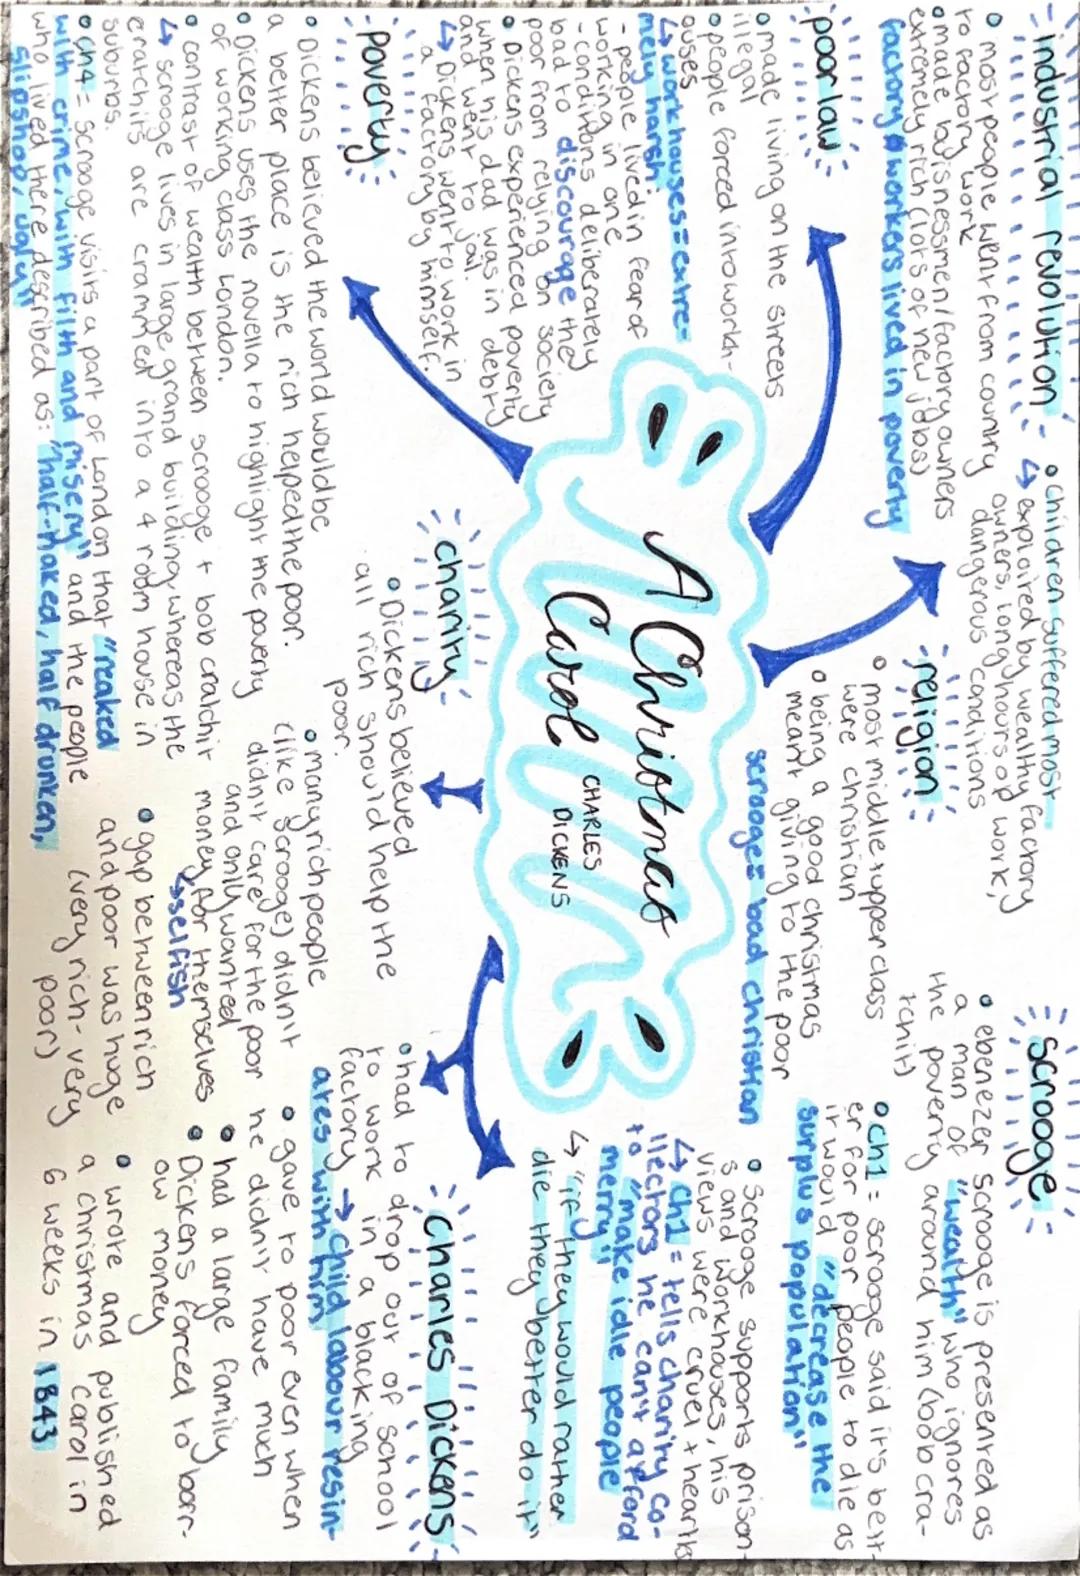 industrial revolution
• most people went from country
to factory work
• made buisnessmen/factory owners
extremely rich (lots of new jobs)
factory workers lived in poverty
• children suffered most
↳ exploited by wealthy factory
owners, long hours of work,
dangerous conditions
poor law
• made living on the streets
illegal
• people forced into workh-
ouses
↳ workhouses = extre-
mely harsh
- people lived in fear of
working in one
- conditions deliberately
bad to discourage the
poor from relying on society
• Dickens experienced poverty
when his dad was in debt
and went to jail.
↳ Dickens went to work in
a factory by himself.
poverty
• Dickens believed the world would be
a better place is the rich helped the poor.
• Dickens uses the novella to highlight the poverty
of working class London.
• contrast of wealth between scrooge + bob cratchit
↳ scrooge lives in large grand building whereas the
cratchits are crammed into a 4 room house in
suburbs.
• ch4 = scrooge visits a part of London that "reaked
with crime, with filth and misery" and the people
who lived there described as: "half-naked, half drunken,
slipshod, ugly"
A Christmas
Carol
CHARLES
DICKENS
religion
• most middle + upper class
were christian
• being a good christmas
meant giving to the poor
scrooge = bad christian
charity
• Dickens believed
all rich should help the
poor.
• many rich people
(like scrooge) didn't
didn't care for the poor
and only wanted
money for themselves
↳ selfish
• gap between rich
and poor was huge
(very rich - very
poor)
scrooge
• ebenezer scrooge is presented as
a man of "wealth" who ignores
the poverty around him (bob cra-
tchit)
• ch1 = scrooge said it's bett-
er for poor people to die as
it would "decrease the
surplus population"
• Scrooge supports prison-
s and workhouses, his
views were cruel + heartls
↳ ch1 = tells charity co-
llectors he can't afford
to "make idle people
merry"
↳ "if they would rather
die they better do it"
Charles Dickens
• had to drop out of school
to work in a blacking
factory → child labour resin-
ates with him
• gave to poor even when
he didn't have much
• had a large family
• Dickens forced to borr-
ow money
• wrote and published
a christmas carol in
6 weeks in 1843